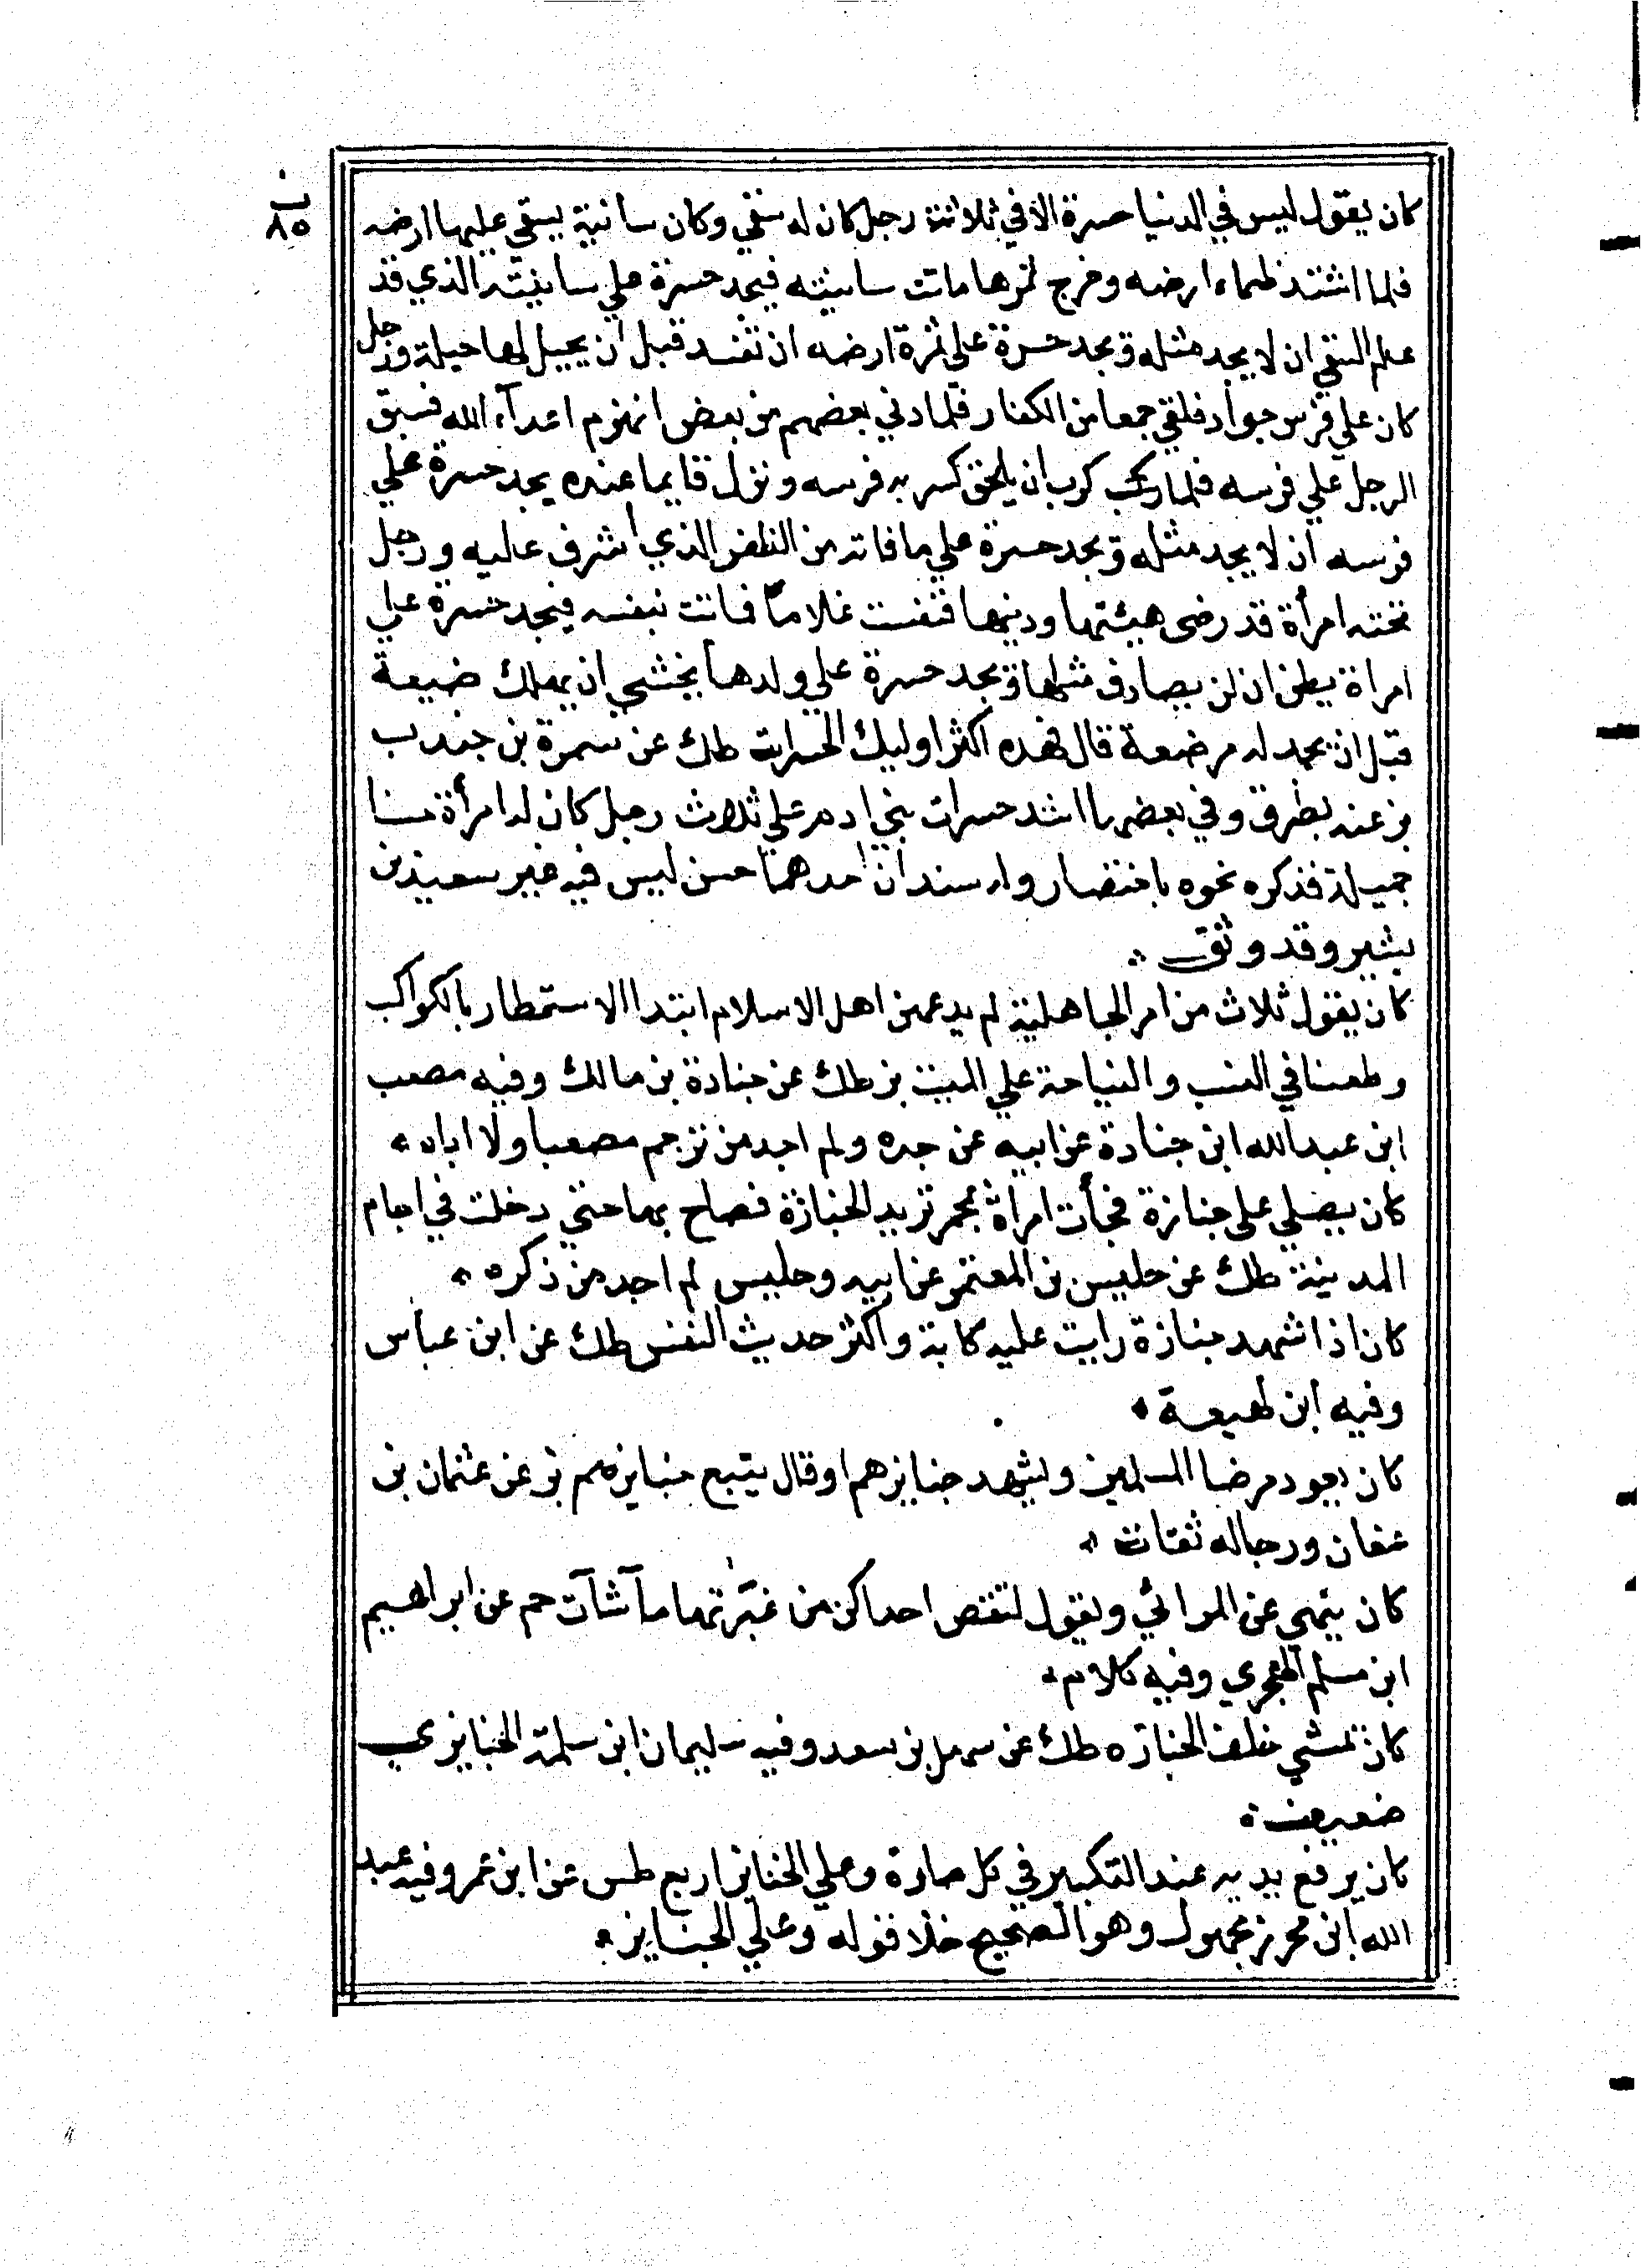 ب
٨٥
كان يقول ليس في الدنيا حسرة الا في ثلاثة رجل كان له سقي وكان سانية يسقي عليها ارضه
فلما اشتد ظماء ارضه وخرج ثمرها ماتت سانيته فيجد حسرة علي سانيته الذي قد
علم السقي ان لا يجد مثله ويجد حسرة علي ثمرة ارضه ان تفسد قبل ان يحيل لها حيلة ورجل
كان علي فرس جواد فلقي جمعا من الكفار فلما دني بعضهم من بعض انهزم اعدآء الله فسبق
الرجل علي فرسه فلما كرب ان يلحق كسر به فرسه ونزل قايما عنده يجد حسرة علي
فرسه ان لا يجد مثله ويجد حسرة علي ما فاته من الظفر الذي اشرف عليه ورجل
تحته امرأة قد رضى هيئتها ودينها فنفست غلاماً فماتت بنفسه فيجد حسرة علي
امراة يظن ان لن يصادف مثلها ويجد حسرة علي ولدها يخشي ان يهلك ضيعة
قبل ان يجد له مرضعة قال فهذه اكثر اوليك الحسرات طك عن سمرة بن جندب
بز عنه بطرق وفي بعضها اشد حسرات بني ادم علي ثلاث رجل كان له امرأة حسنا
جميلة فذكره نحوه باختصار وله سندان احدهما حسن ليس فيه غير سعيد بن
بشير وقد وثق
كان يقول ثلاث من امر الجاهلية لم يدعهن اهل الاسلام ابتدا الاستمطار بالكواكب
وطعنا في النسب والنياحة علي الميت بز طك عن جنادة بن مالك وفيه مصعب
ابن عبدالله ابن جنادة عن ابيه عن جده ولم اجد من ترجم مصعبا ولا اباه
كان يصلي على جنازة فجأت امراة بمجمر تريد الجنازة فصاح بها حتي دخلت في اجام
المدينة طك عن حليس بن المعتمر عن ابيه وحليس لم اجد من ذكره
كان اذا شهد جنازة رايت عليه كابة واكثر حديث النفس طك عن ابن عباس
وفيه ابن لهيعة
كان يعود مرضا المسلمين ويشهد جنايزهم او قال يتبع جنايزهم بز عن عثمان بن
عفان ورجاله ثقات
كان ينهي عن المراثي ويقول لتفض احداكن من عبرتها ما شآت حم عن ابراهيم
ابن مسلم الهجري وفيه كلام
كان يمشي خلف الجنازه طك عن سهل بن سعد وفيه سليمان ابن سلمة الخبايزي
ضعيف
كان يرفع يديه عند التكبير في كل صلاة وعلي الجنايز اربع طس عن ابن عمر وفيه عبد
الله ابن محرز مجهول وهو الصحيح خلا قوله وعلي الجنايز